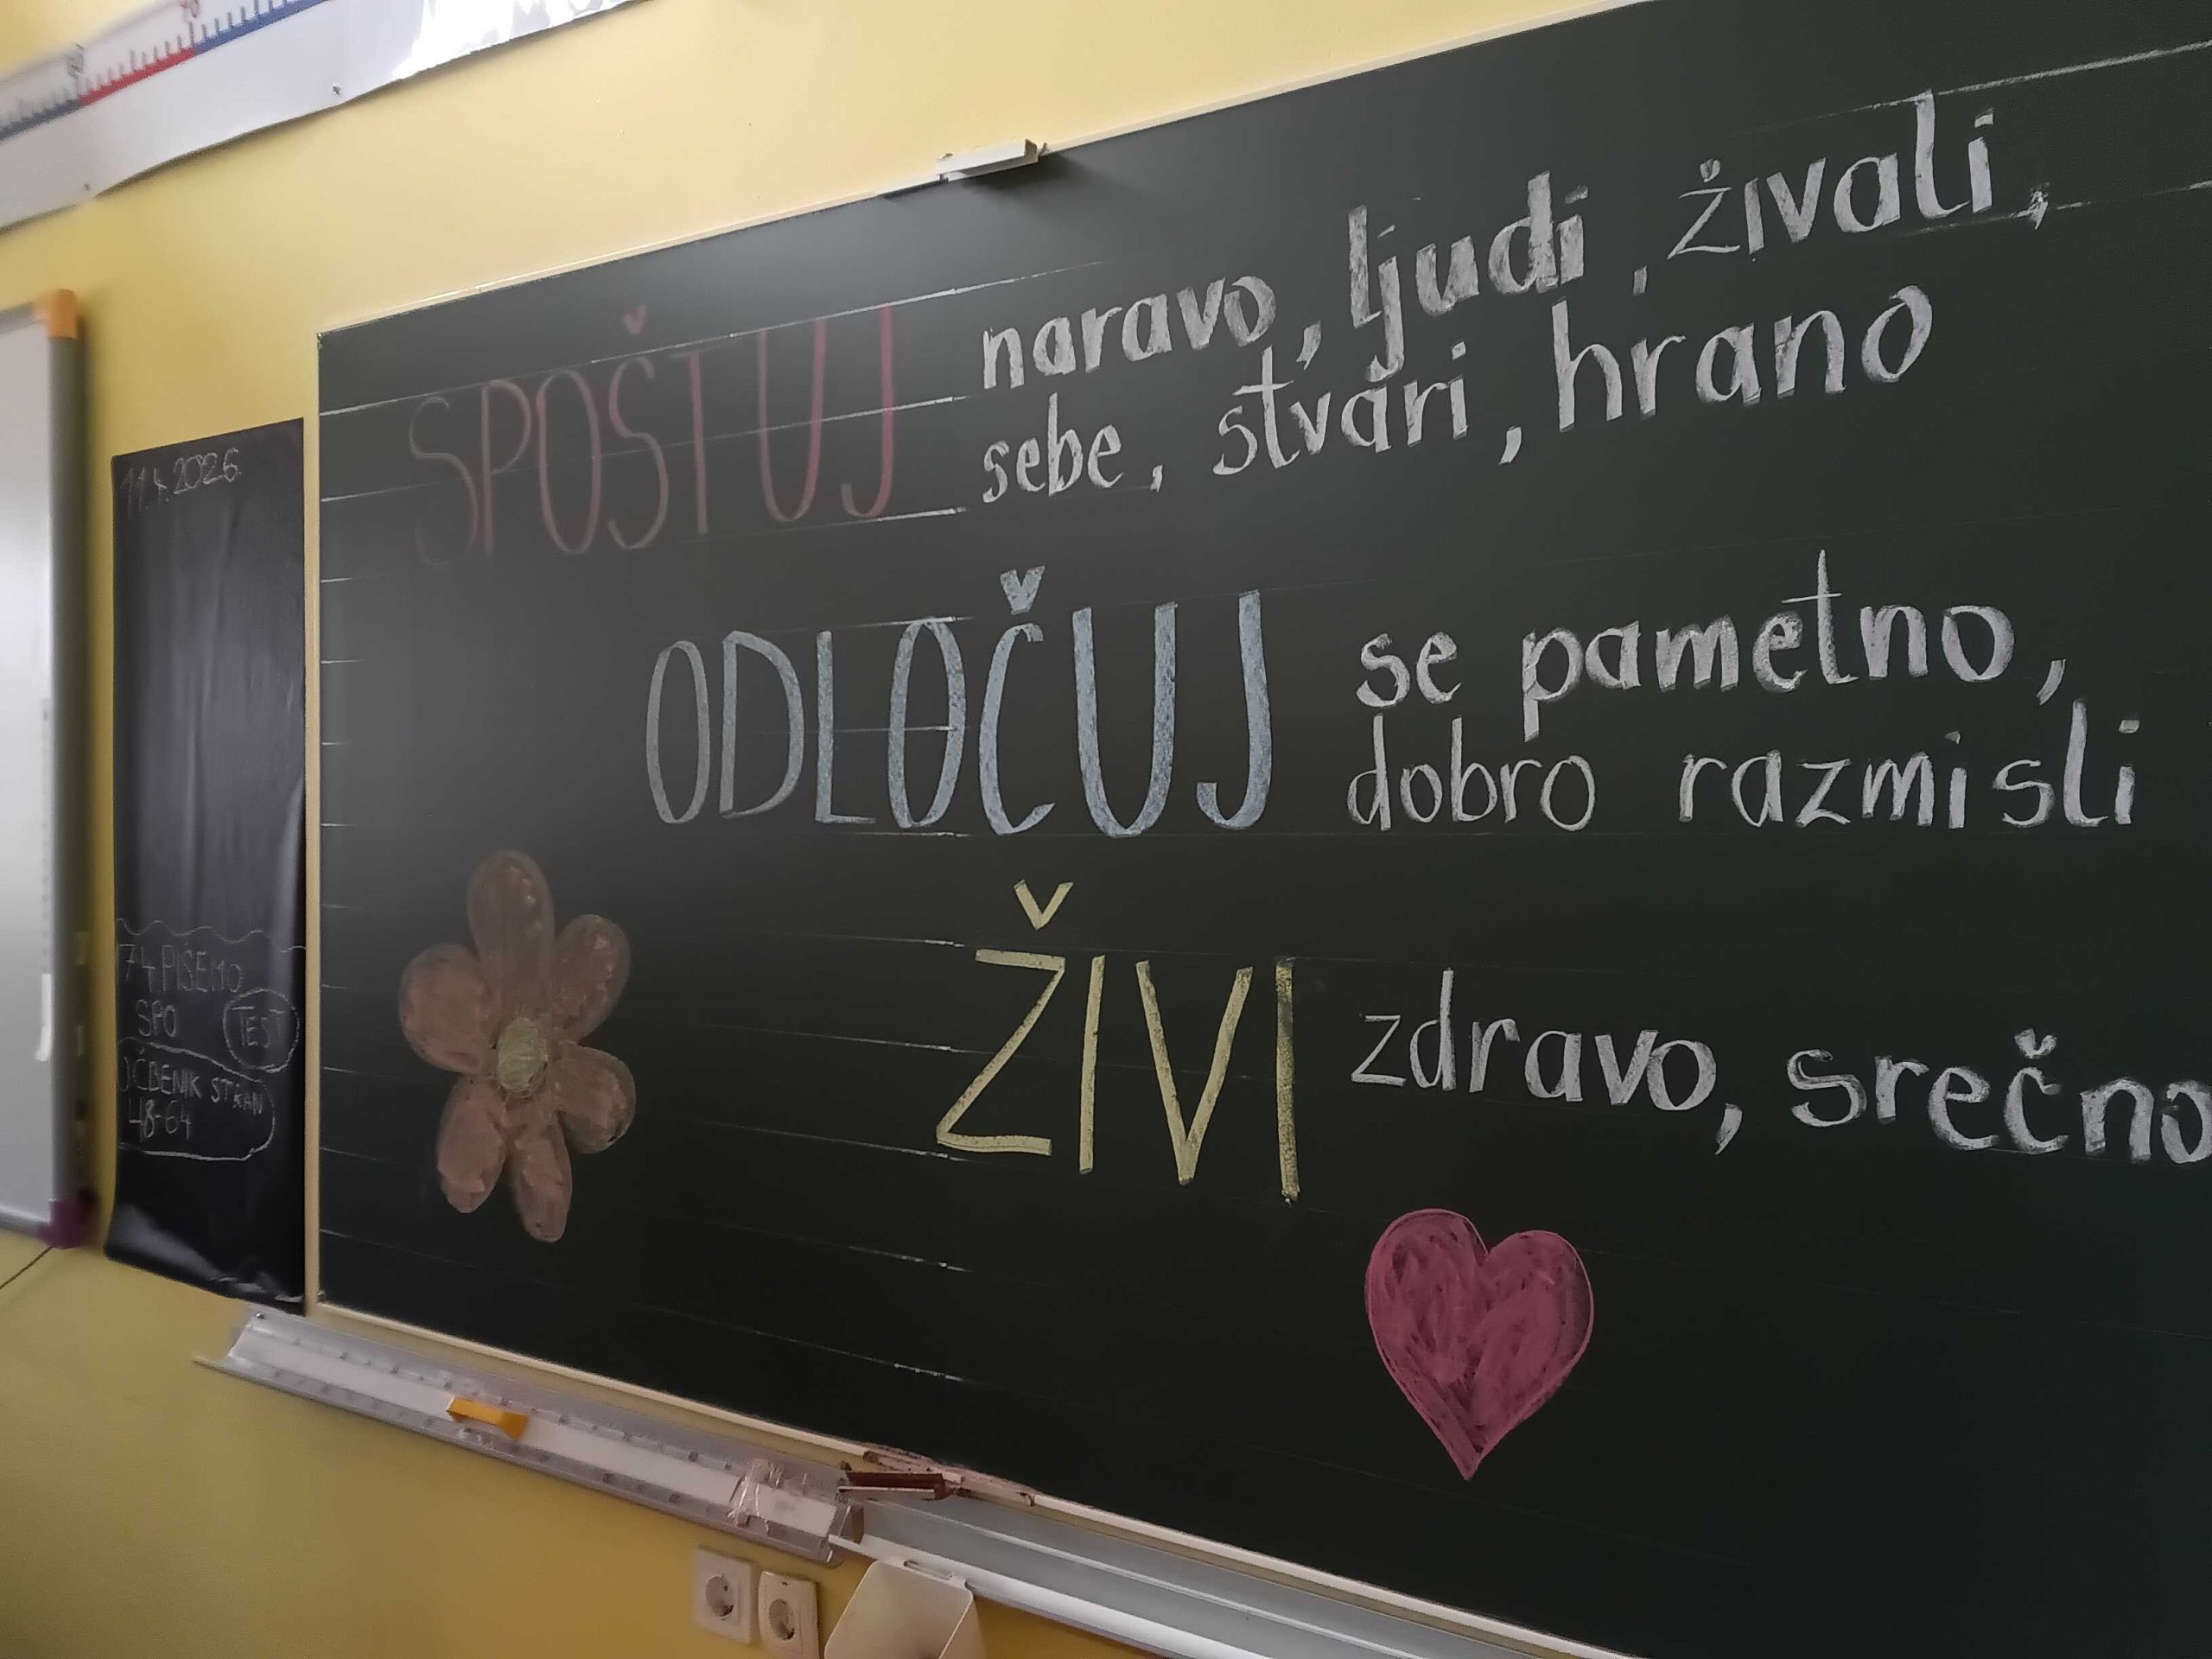 11.4.2026.
SPOŠTUJ naravo, ljudi, živali,
sebe, stvari, hrano
ODLOČUJ se pametno,
dobro razmisli
ŽIVI zdravo, srečno
PIŠEMO
SPO TEST
UČBENIK STRAN
48-64